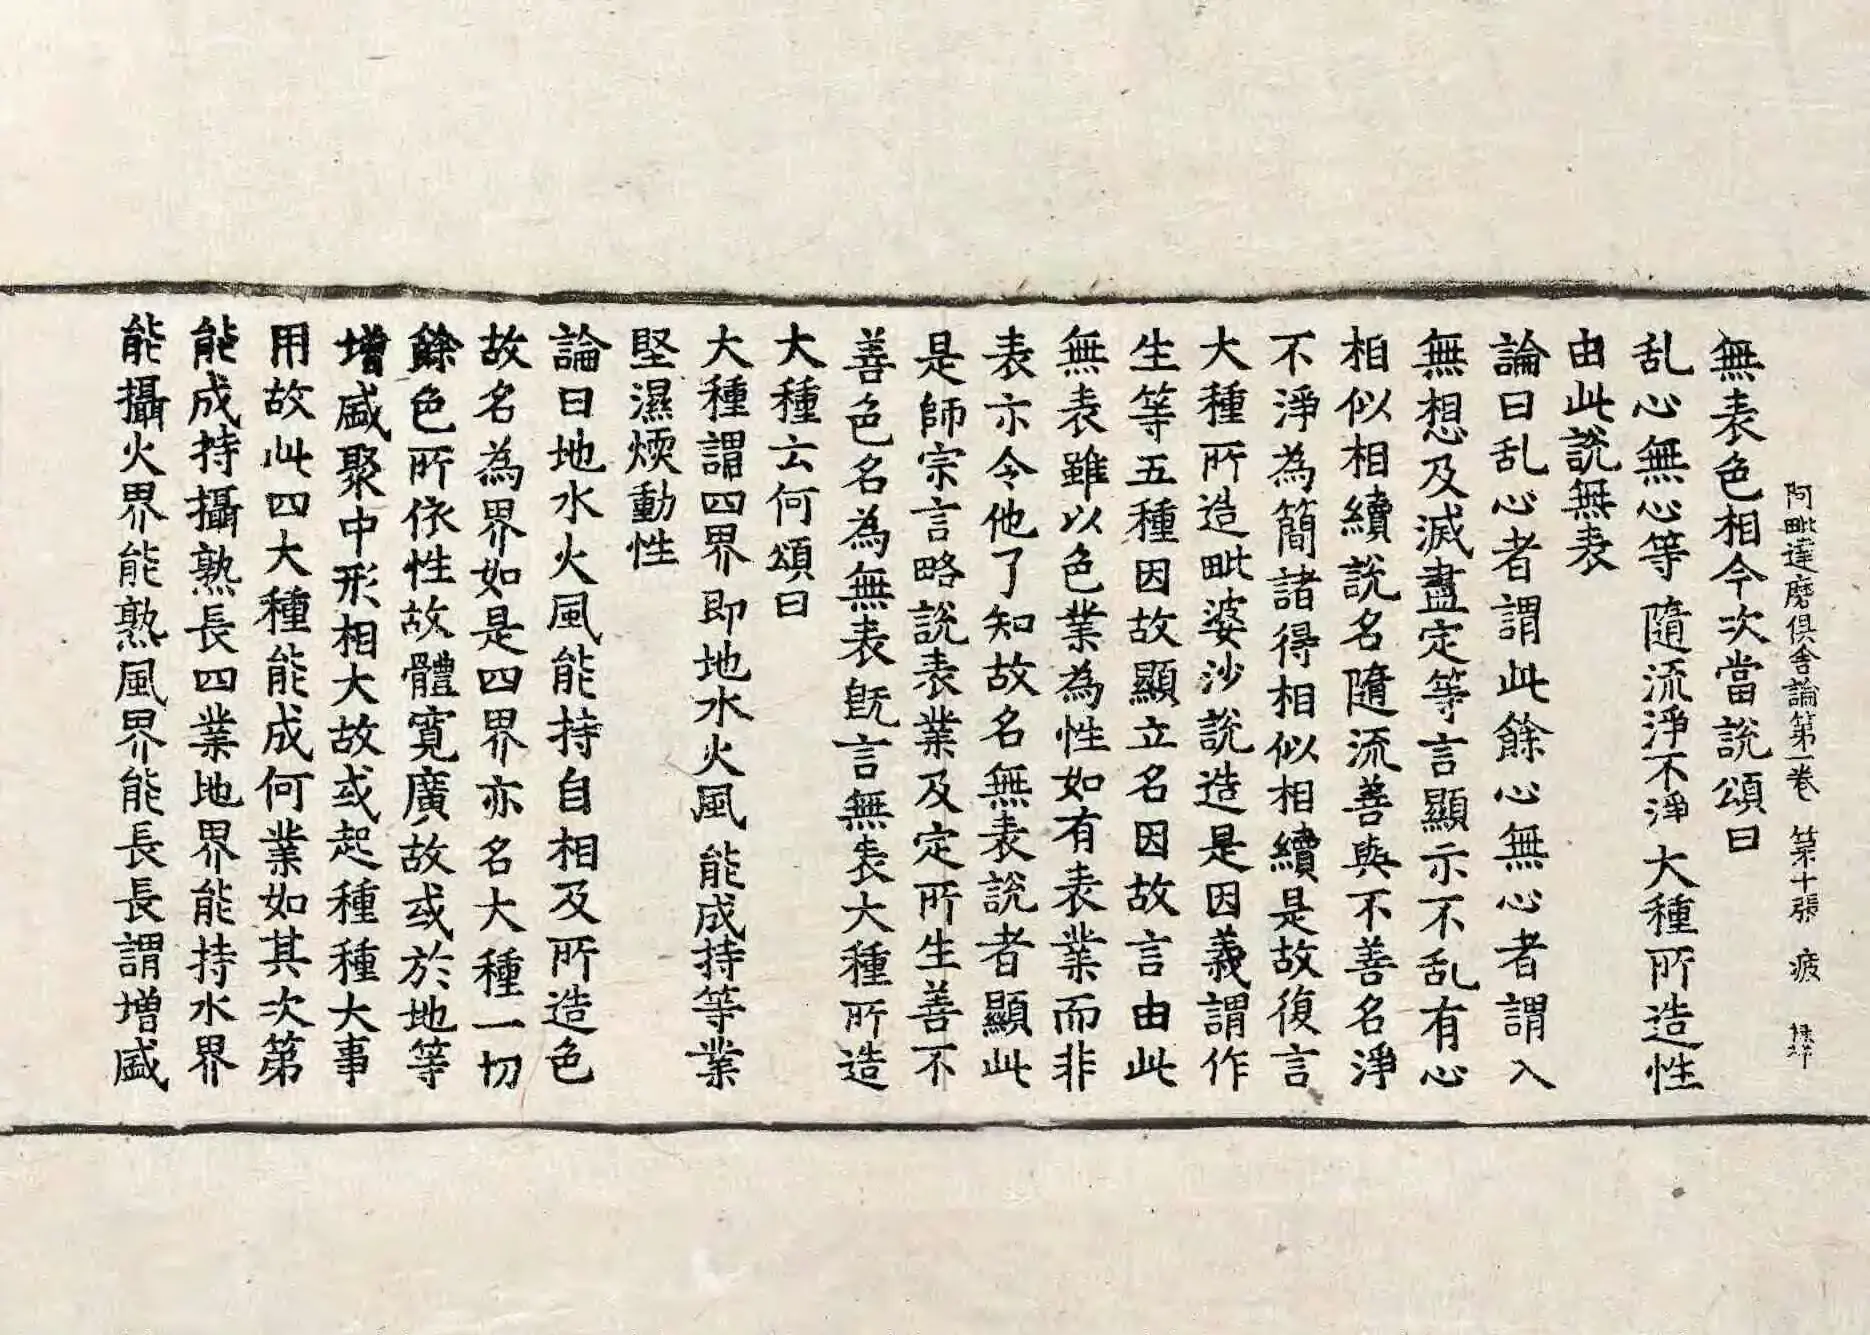 阿毗達磨俱舍論第一卷 第十張 疲
無表色相今次當說頌曰
乱心無心等 隨流淨不淨 大種所造性
由此說無表
論曰乱心者謂此餘心無心者謂入
無想及滅盡定等言顯示不乱有心
相似相續說名隨流善與不善名淨
不淨為簡諸得相似相續是故復言
大種所造毗婆沙說造是因義謂作
生等五種因故顯立名因故言由此
無表雖以色業為性如有表業而非
表亦令他了知故名無表說者顯此
是師宗言略說表業及定所生善不
善色名為無表既言無表大種所造
大種云何頌曰
大種謂四界 即地水火風 能成持等業
堅濕煖動性
論曰地水火風能持自相及所造色
故名為界如是四界亦名大種一切
餘色所依性故體寬廣故或於地等
增盛聚中形相大故或起種種大事
用故此四大種能成何業如其次第
能成持攝熟長四業地界能持水界
能攝火界能熟風界能長長謂增盛